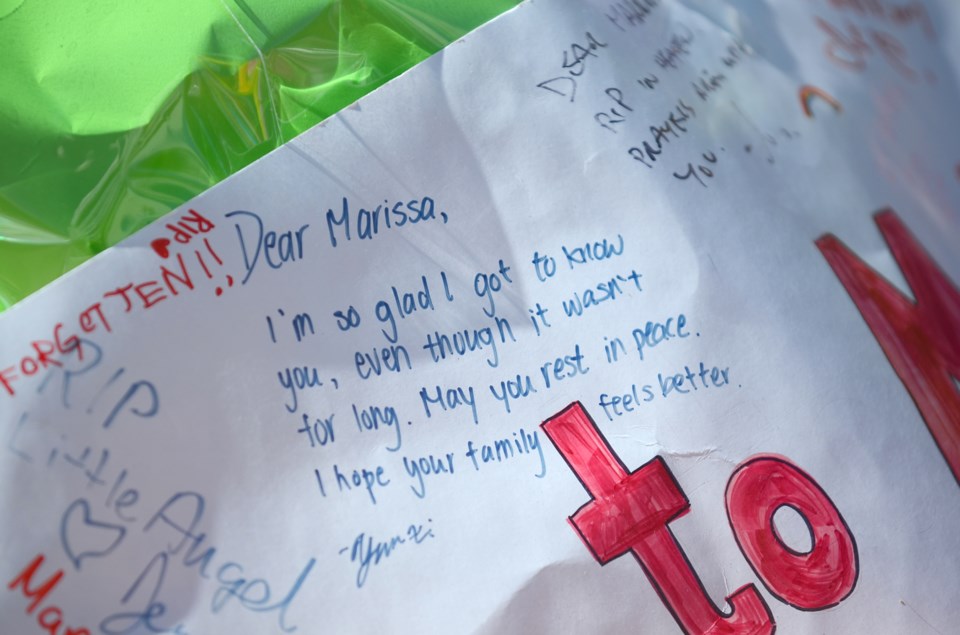 DEAR
RIP IN
PRAYERS
YOU.
RIP
FORGOTTEN!!
Dear Marissa,
I'm so glad I got to know
you, even though it wasn't
for long. May you rest in peace.
I hope your family feels better.
RIP
Little
Angel
to